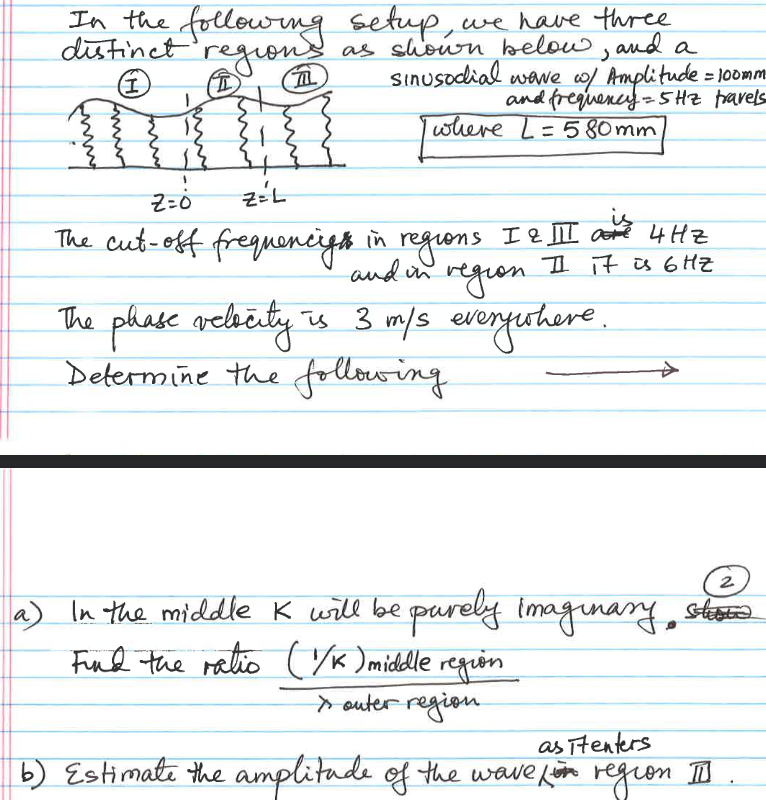 In the following setup, we have three
distinct regions as shown below, and a
I II III sinusodial wave w/ Amplitude = 100mm
and frequency = 5Hz travels
where L = 580mm
Z=0 Z=L
The cut-off frequencies in regions I & III is 4HZ
and in region II it is 6HZ
The phase velocity is 3 m/s everywhere.
Determine the following →
2
a) In the middle K will be purely imaginary.
Find the ratio (1/K) middle region
λ outer region
as it enters
b) Estimate the amplitude of the wave, region III.